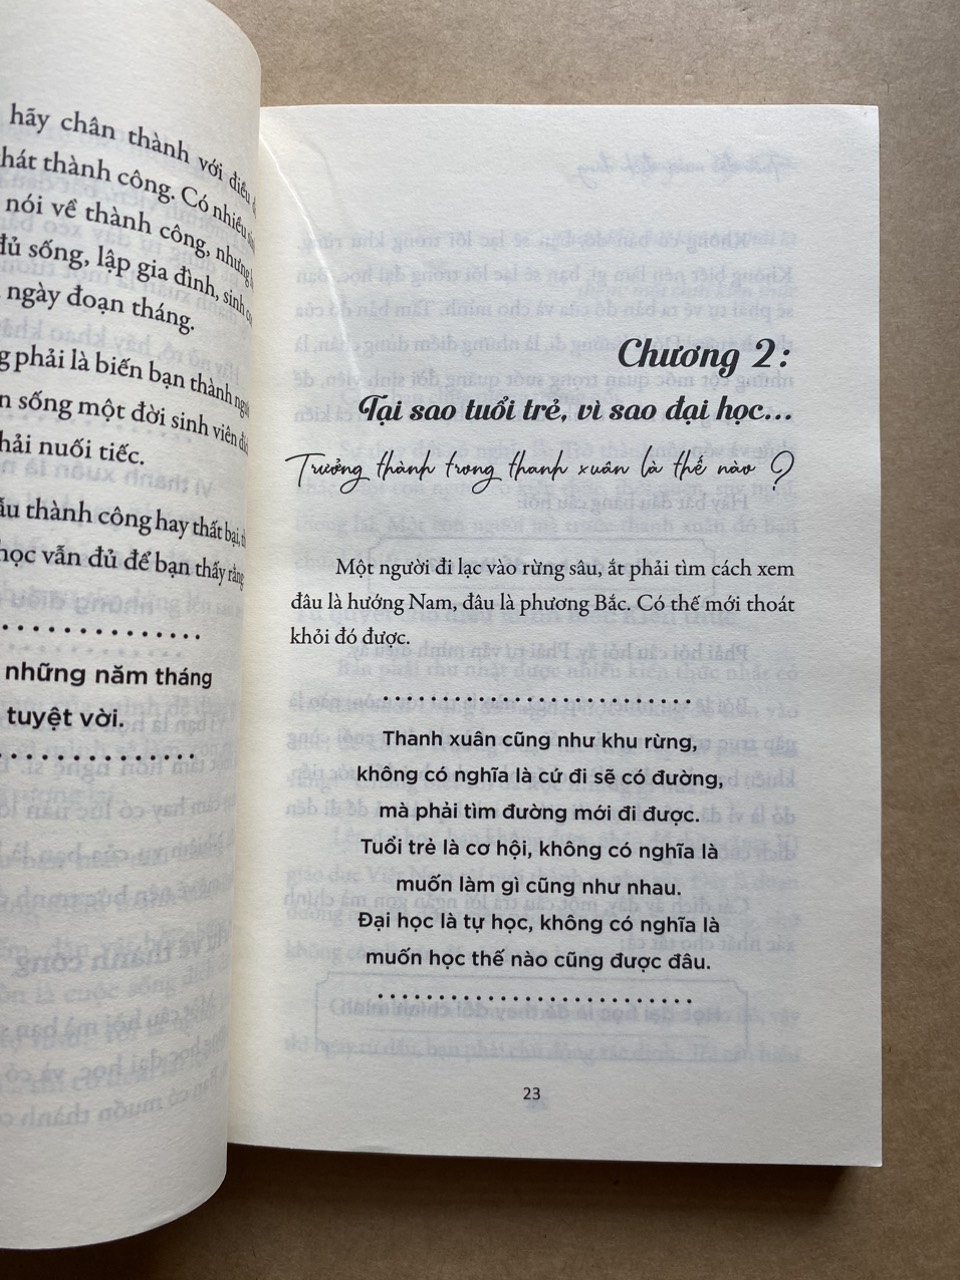 hãy chân thành với điều
thành công. Có nhiều
nói về thành công, nhưng
đủ sống, lập gia đình, sinh
ngày đoạn tháng.
phải là biến bạn thành
sống một đời sinh viên
nuối tiếc.
thành công hay thất bại,
học vẫn đủ để bạn thấy rằng
những năm tháng
tuyệt vời.
Chương 2:
Tại sao tuổi trẻ, vì sao đại học...
Trưởng thành trong thanh xuân là thế nào ?
Một người đi lạc vào rừng sâu, ắt phải tìm cách xem
đâu là hướng Nam, đâu là phương Bắc. Có thế mới thoát
khỏi đó được.
Thanh xuân cũng như khu rừng,
không có nghĩa là cứ đi sẽ có đường,
mà phải tìm đường mới đi được.
Tuổi trẻ là cơ hội, không có nghĩa là
muốn làm gì cũng như nhau.
Đại học là tự học, không có nghĩa là
muốn học thế nào cũng được đâu.
23